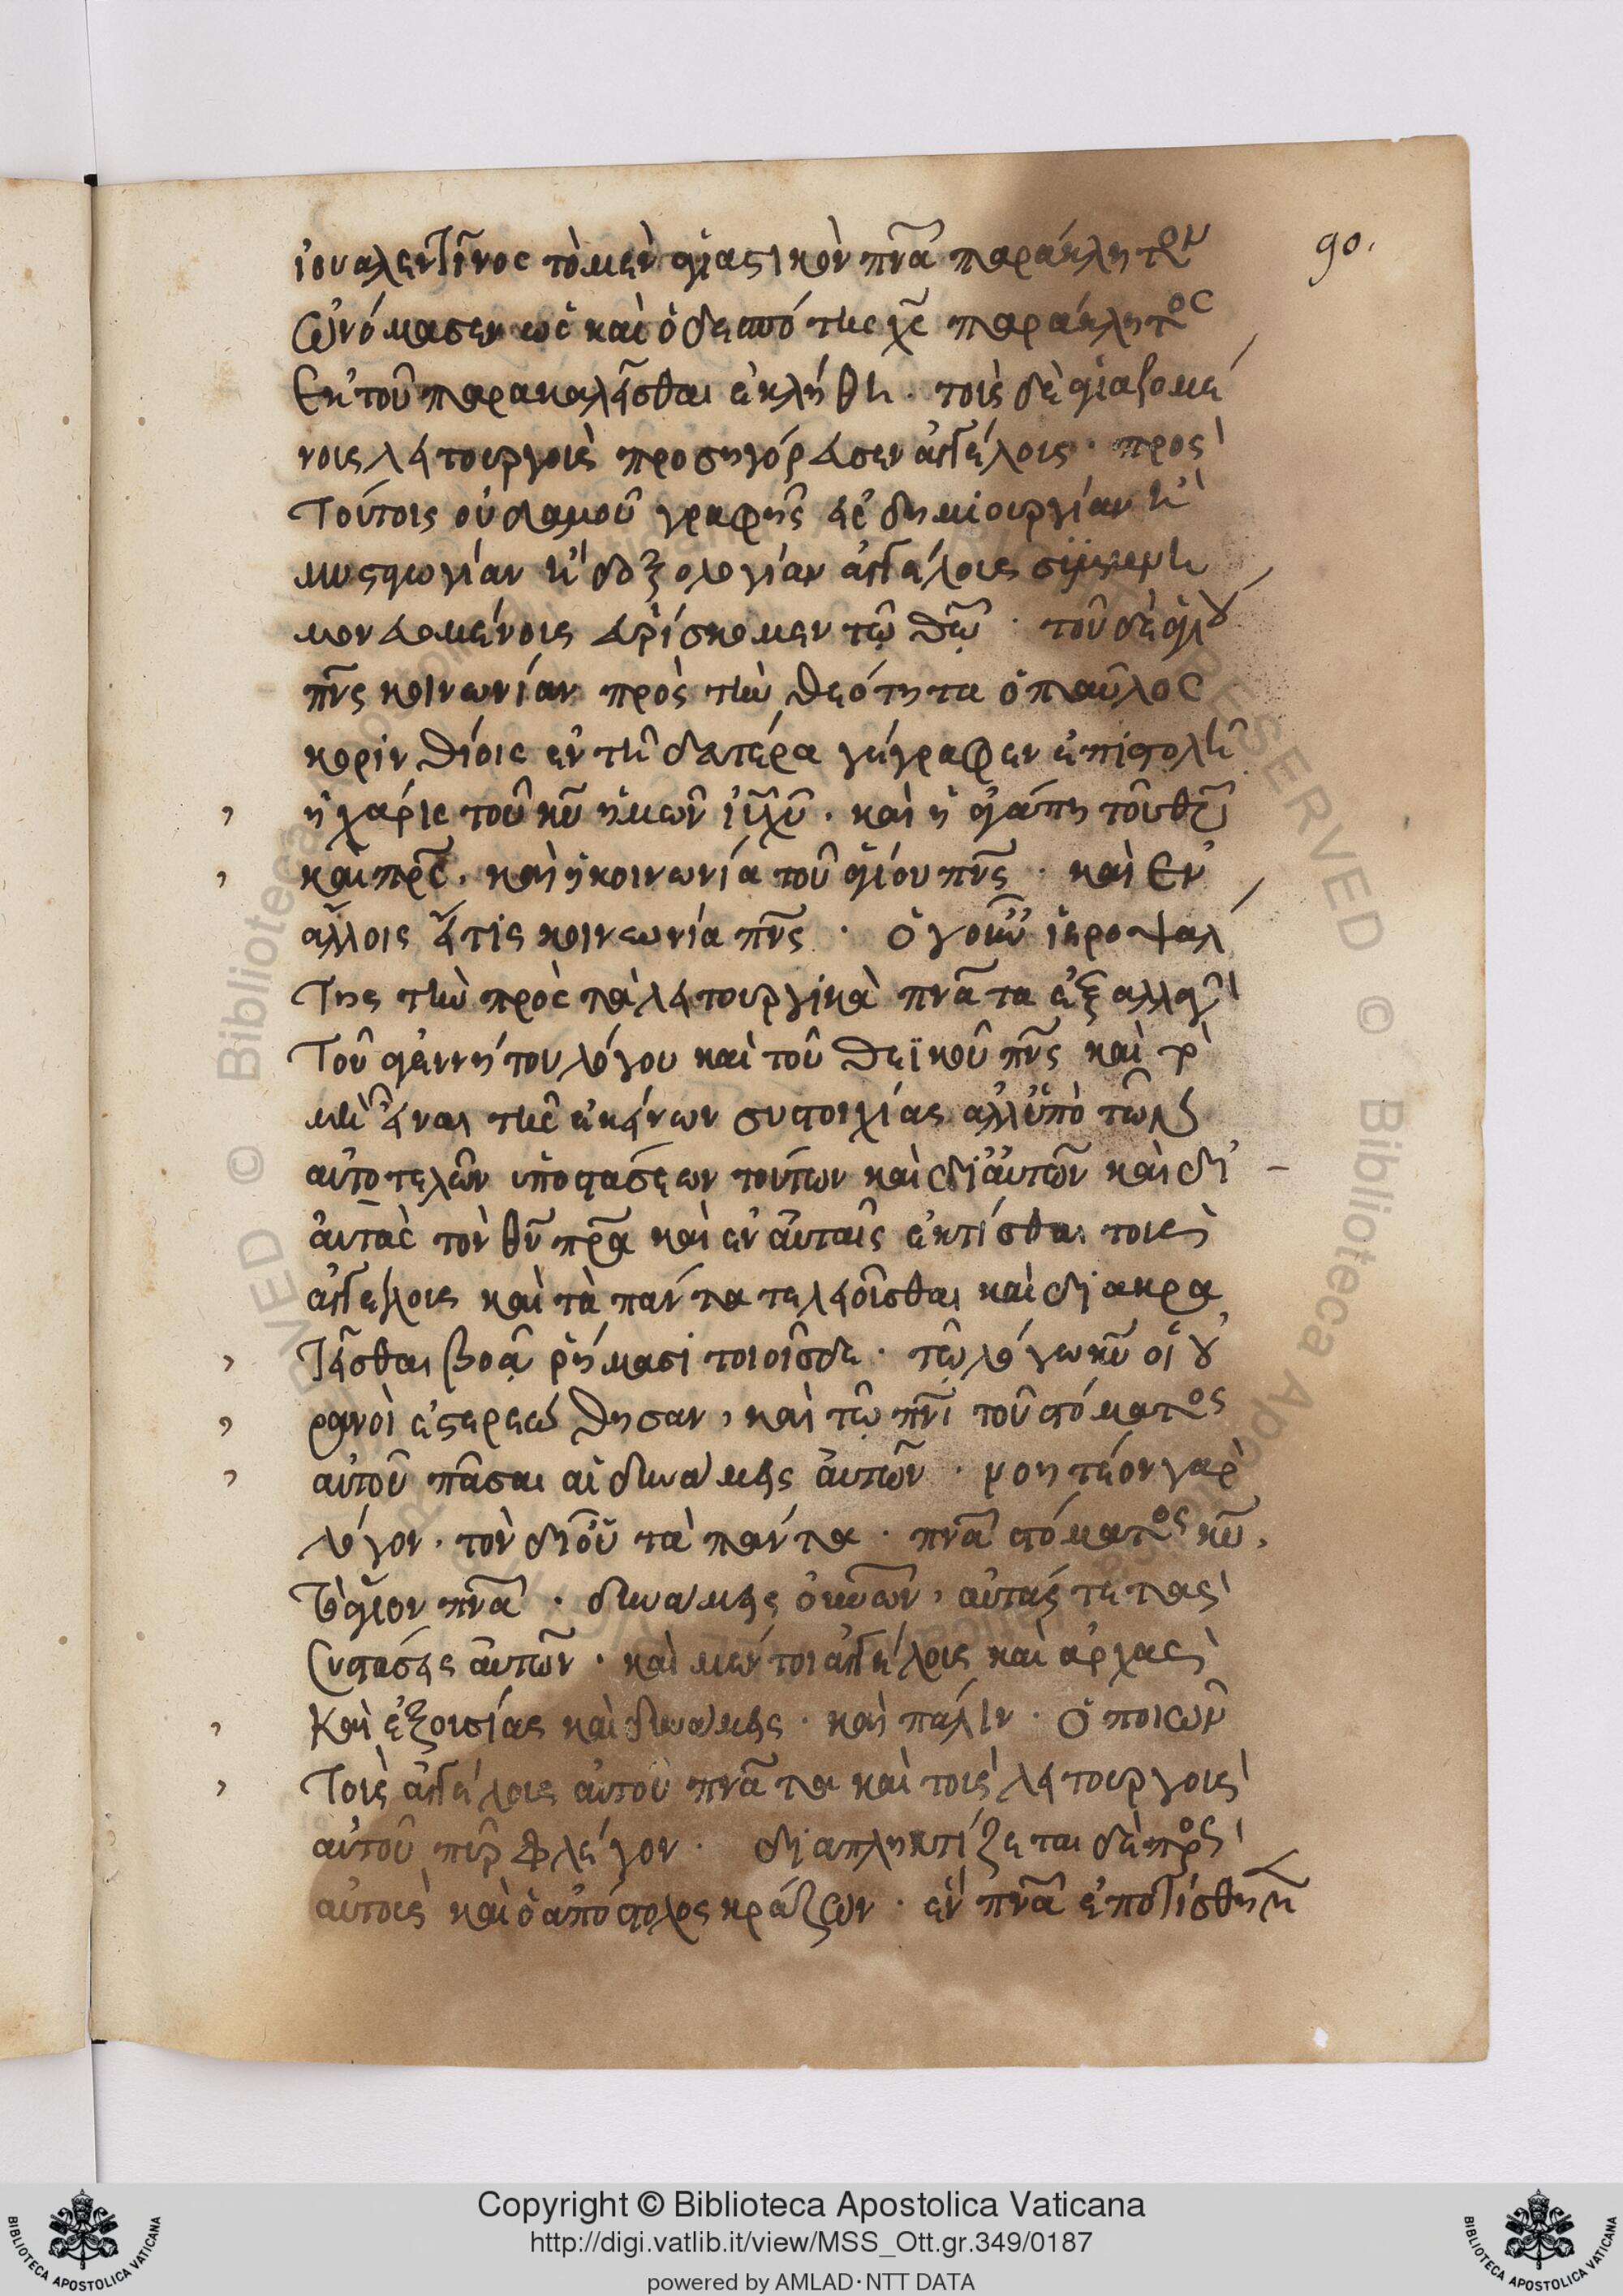 ἰουαλεντῖνος τὸ μὲν ἁγιαστικὸν πν̅α παράκλητον
ὠνόμασεν ὡς καὶ ὁ δεσπότης χ̅ς παράκλητος
ἐκ τοῦ παρακαλεῖσθαι ἐκλήθη · τοῖς δὲ ἁγιαζομέ
νοις λειτουργοῖς προσηγόρευσεν ἀγγέλοις · πρὸς
τούτοις οὐδαμοῦ γραφῆς εἰς δημιουργίαν κ̀
μυσταγωγίαν κ̀ δοξολογίαν ἀγγέλοις
μονευομένοις εὑρίσκομεν τῷ θ̅ῷ · τοῦ δὲ ἁγίου
πν̅ς κοινωνίαν πρὸς τὴν θεότητα ὁ παῦλος
κορινθίοις ἐν τῇ δευτέρα γέγραφεν ἐπιστολῇ
ἡ χάρις τοῦ κ̅υ ἡμῶν ι̅υ χ̅υ · καὶ ἡ ἀγάπη τοῦ θ̅υ
καὶ πρ̅ς · καὶ ἡ κοινωνία τοῦ ἁγίου πν̅ς · καὶ ἐν
ἄλλοις εἴ τις κοινωνία πν̅ς · ὁ γοῦν ἱεροψάλ
της τὴν πρὸς τὰ λειτουργικὰ πν̅ατα ἐξαλλαγὴ
τοῦ ἀγεννήτου λόγου καὶ τοῦ θεϊκοῦ πν̅ς καὶ τὸ
μὴ εἶναι τῆς ἐκείνων συστοιχίας ἀλλ' ὑπὸ τῶν
αὐτοτελῶν ὑποστάσεων τούτων καὶ δι' αὐτῶν καὶ δι'
αὐτὰς τὸν θ̅ν πρ̅α καὶ ἐν αὐταῖς ἐκτίσθαι τοὺς
ἀγγέλοις καὶ τὰ πάντα τελειοῦσθαι καὶ διακρα
τεῖσθαι βοᾷ ῥήμασι τοιοῖσδε · τῷ λόγω κ̅υ οἱ οὐ
ρανοὶ ἐστερεώθησαν, καὶ τῷ πν̅ι τοῦ στόματος
αὐτοῦ πᾶσαι αἱ δυνάμεις αὐτῶν · νοητέον γὰρ
λόγον · τὸν δι' οὗ τὰ πάντα · πν̅α στόματος κ̅υ,
τὸ ἅγιον πν̅α · δυνάμεις οὐνῶν, αὐτάς τε τὰς
συστάσεις αὐτῶν · καὶ μέντοι ἀγγέλοις καὶ ἀρχὰς
καὶ ἐξουσίας καὶ δυνάμεις · καὶ πάλιν · ὁ ποιῶν
τοὺς ἀγγέλοις αὐτοῦ πν̅ατα καὶ τοὺς λειτουργοὺς
αὐτοῦ πῦρ φλέγον · διαπληκτίζεται δὲ πρὸς
αὐτοὺς καὶ ὁ ἀπόστολος κράζων · ἓν πν̅α ἐποτίσθημεν
90.
Copyright © Biblioteca Apostolica Vaticana
http://digi.vatlib.it/view/MSS_Ott.gr.349/0187
powered by AMLAD·NTT DATA
BIBLIOTECA APOSTOLICA VATICANA
BIBLIOTECA APOSTOLICA VATICANA